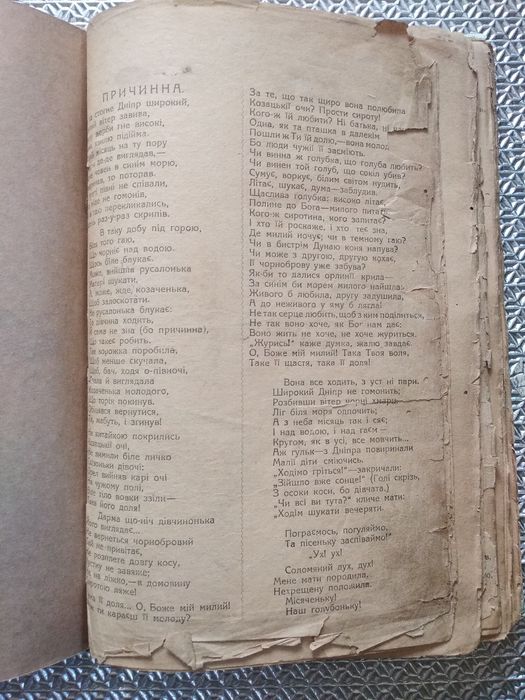 ПРИЧИННА.
стогне Дніпр широкий,
вітер завива,
верби гне високі,
підійма.
місяць на ту пору
де-де виглядав,—
човен в синім морю,
то потопав.
півні не співали,
не гомонів,
перекликались,
раз-у-раз скрипів.
В таку добу під горою,
Біля того гаю,
Що чорніє над водою.
Щось біле блукає.
Може, вийшла русалонька
Матері шукати,
А може, жде, козаченька,
Щоб залоскотати.
Не русалонька блукає:
То дівчина ходить,
Й сама не зна (бо причинна),
Що такеє робить.
Так ворожка поробила,
Щоб менше скучала,
Щоб, бач, ходя о-півночі,
Спала й виглядала
Козаченька молодого,
Що торік покинув.
Обіщався вернутися,
Та, мабуть, і згинув!
Не китайкою покрились
Козацькії очі,
Не вимили біле личко
Слізоньки дівочі:
Орел вийняв карі очі
На чужому полі,
Біле тіло вовки ззіли—
Така його доля!
Дарма що-ніч дівчинонька
Його виглядає...
Не вернеться чорнобривий
Та й не привітає,
Не розплете довгу косу,
Хустку не завяже;
Не на ліжко,—в домовину
Сиротою ляже!
Така її доля... О, Боже мій милий!
За що ти караєш її молоду?
За те, що так щиро вона полюбила
Козацькії очи? Прости сироту!
Кого-ж їй любити? Ні батька, ні
Одна, як та пташка в далекім
Пошли-ж Ти їй долю,—вона молод
Бо люди чужії її засміють.
Чи винна ж голубка, що голуба любить?
Чи винен той голуб, що сокіл убив?
Сумує, воркує, білим світом нудить,
Літає, шукає, дума—заблудив.
Щаслива голубка: високо літає,
Полине до Бога—милого питать.
Кого-ж сиротина, кого запитає?
І хто їй роскаже, і хто теє зна,
Де милий ночує: чи в темному гаю?
Чи в бистрім Дунаю коня напува?
Чи може з другою, другую кохає,
Її чорноброву уже забува?
Як-би то далися орлині крила—
За синім би морем милого найшла:
Живого б любила, другу задушила,
А до неживого у яму б лягла!
Не так серце любить, щоб з ким поділиться,
Не так воно хоче, як Бог нам дає:
Воно жить не хоче, не хоче журиться.
„Журись!“ каже думка, жалю завдає.
О, Боже мій милий! Така Твоя воля,
Таке її щастя, така її доля!
Вона все ходить, з уст ні пари.
Широкий Дніпр не гомонить;
Розбивши вітер чорні хмари,
Ліг біля моря одпочить;
А з неба місяць так і сяє;
І над водою, і над гаєм—
Кругом, як в усі, все мовчить...
Аж гульк—з Дніпра повиринали
Малії діти сміючись.
„Ходімо гріться!“—закричали:
„Зійшло вже сонце!“ (Голі скрізь,
З осоки коси, бо дівчата.)
„Чи всі ви тута?“ кличе мати:
„Ходім шукати вечеряти.
Пограємось, погуляймо,
Та пісеньку заспіваймо!“
„Ух! ух!
Соломяний дух, дух!
Мене мати породила,
Нехрещену положила.
Місяченьку!
Наш голубоньку!